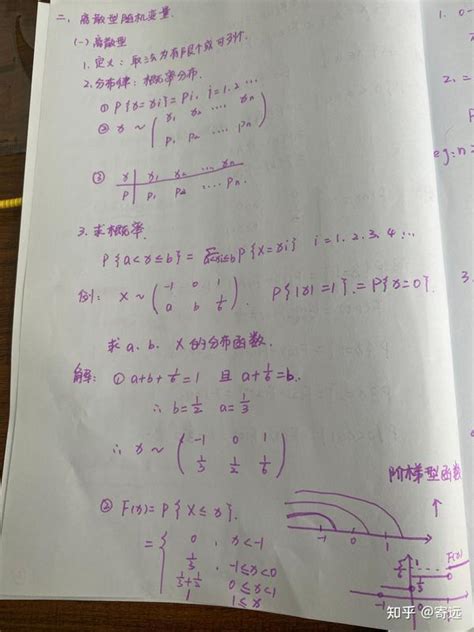 二、离散型随机变量.
(一)离散型
1. 定义: 取法为有限个或可列个.
2. 分布律: 概率分布.
① P{x=xi}=Pi, i=1.2…
② x ~ ( x₁ x₂ … xn
p₁ p₂ … pn )
③ x | x₁ x₂ … xn
P | p₁ p₂ … pn
3. 求概率.
P{a<x≤b} = Σ a<xi≤b P{X=xi} i=1.2.3.4…
例: X ~ ( -1 0 1
a b 1/6 ) . P{|x|=1}=P{x=0}.
求 a、b、X的分布函数.
解: ① a+b+1/6=1 且 a+1/6=b.
∴ b=1/2 a=1/3
∴ x ~ ( -1 0 1
1/3 1/2 1/6 )
阶梯型函数
② F(x)=P{X≤x}.
= { 0 , x<-1
1/3 , -1≤x<0
1/3+1/2 0≤x<1
1 1≤x
-1 0 1
F(x)
1
-1 0 1
1. 0-
2.
2. =
eg: n=
3.
知乎 @寄远